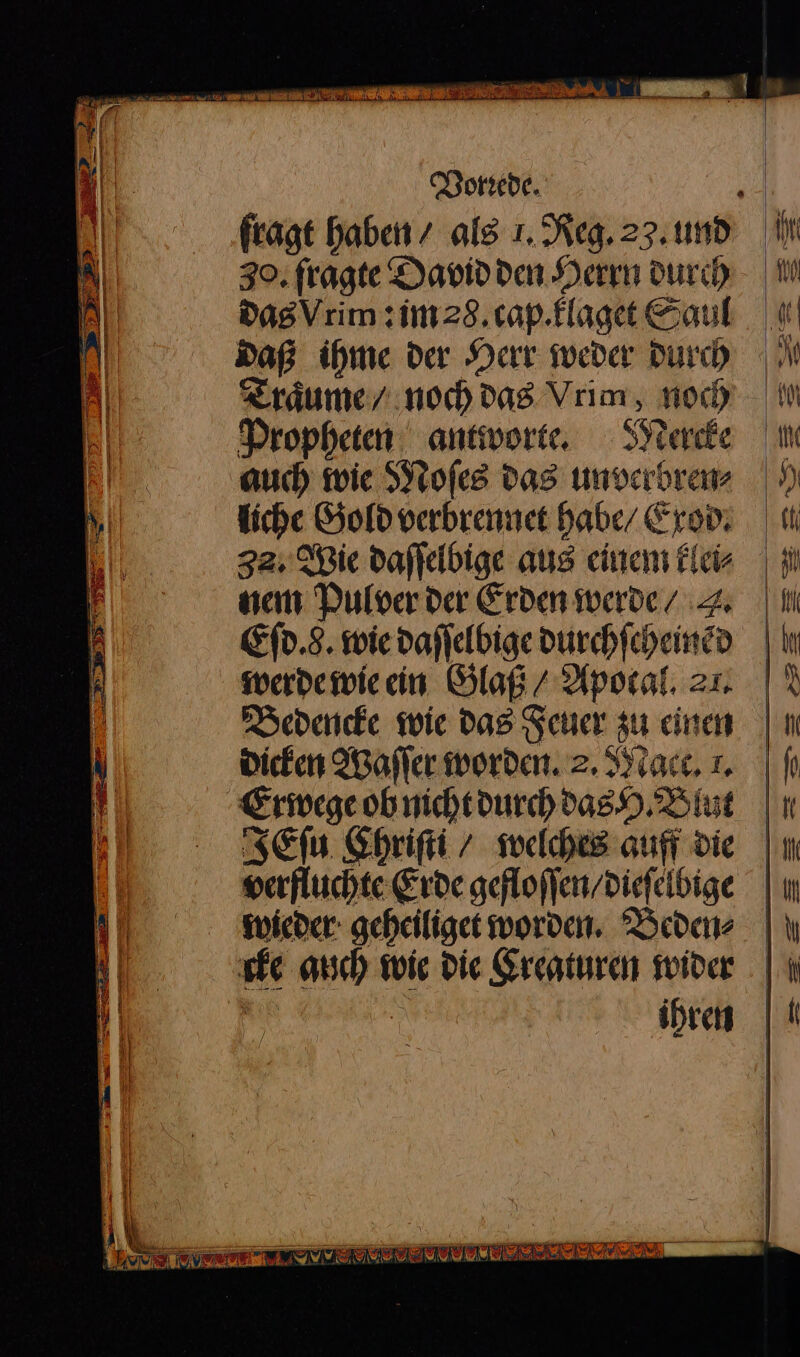 Vorꝛede.
fragt haben / als 1. Reg. 23. und
30. fragte David den Herrn durch
das Vrim : im 28. cap. klaget Saul
daß ihme der Herr weder durch
Traͤume / noch das Vrim, noch
Propheten antworte. Mercke
auch wie Moſes das unverbren⸗
liche Gold verbrennet habe / Exod.
32. Wie daſſelbige aus einem klei⸗
nem Pulver der Erden werde / 4.
Eſd. 8. wie daſſelbige durchſcheinẽd
werde wie ein Glaß / Apocal. 21.
Bedencke wie das Feuer zu einen
dicken Waſſer worden. 2. Macc. 1.
Erwege ob nicht durch das H. Blut
JEſu Chriſti / welches auff die
verfluchte Erde gefloſſen / dieſelbige
wieder geheiliget worden. Beden⸗
cke auch wie die Creaturen wider
ihren